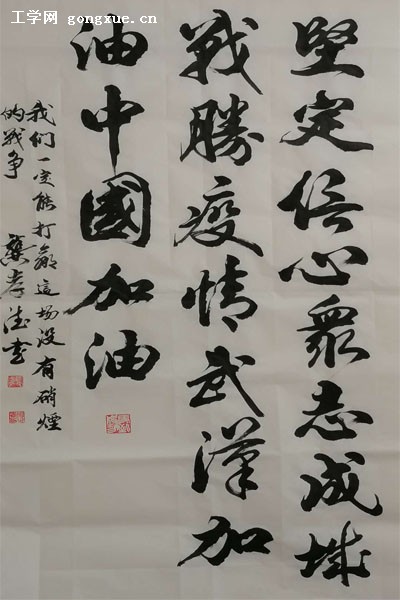 工学网 gongxue.cn
堅定信心衆志成城
戰勝疫情武漢加
油中國加油
我们一定能打赢這場没有硝煙
的戰争
龔孝德书